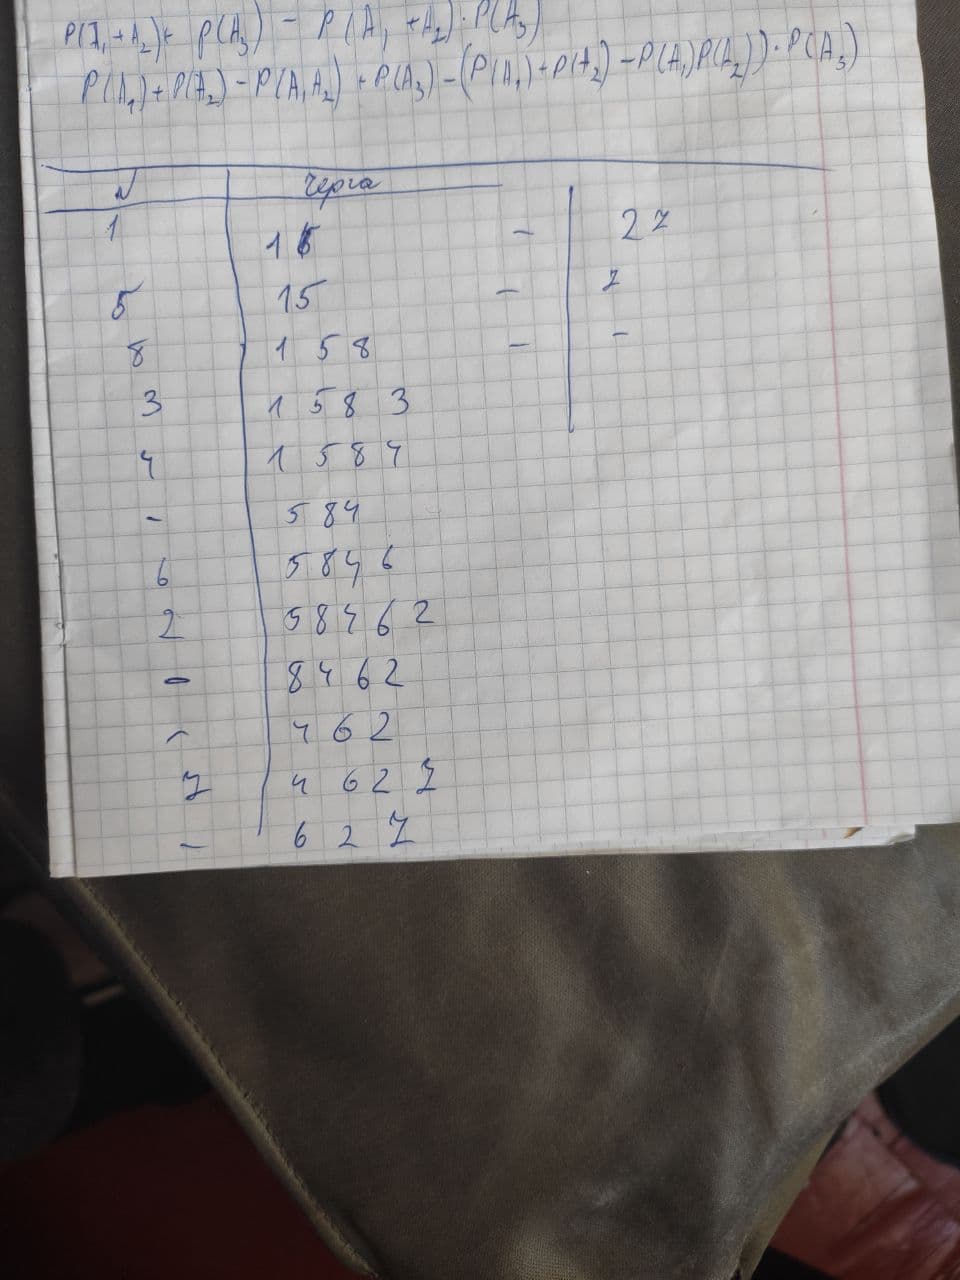 P(A₁+A₂)+ P(A₃) - P(A₁+A₂)·P(A₃)
P(A₁)+P(A₂)-P(A₁A₂)+P(A₃)-(P(A₁)+P(A₂)-P(A₁)P(A₂))·P(A₃)
N Черга
1 1 5 - 2 7
5 15 - 7
8 1 5 8 - -
3 1 5 8 3
4 1 5 8 4
- 5 8 4
6 5 8 4 6
2 5 8 4 6 2
- 8 4 6 2
- 4 6 2
7 4 6 2 7
- 6 2 7